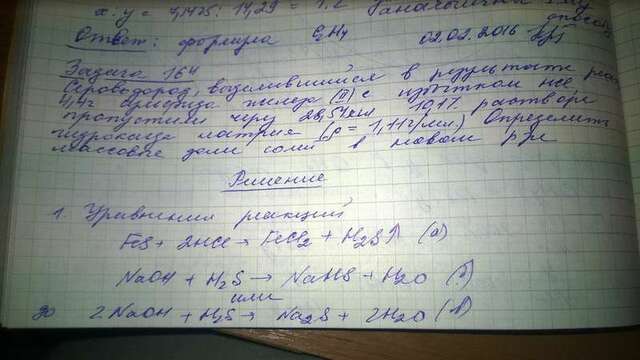 x : y = 7,1425 : 14,29 = 1:2
Ответ: формула C2H4 02.02.2016
Задача 164
Сероводород, выделившийся в результате
4,4г сульфида железа (II) с избытком HCl
пропустили через 28,57мл 10%. раствора
гидроксида натрия (ρ = 1,1 г/мл.) Определить
массовые доли солей в новом р-ре
Решение
1. Уравнения реакций
FeS + 2HCl → FeCl2 + H2S↑ (а)
NaOH + H2S → NaHS + H2O (б)
или
2NaOH + H2S → Na2S + 2H2O (в)